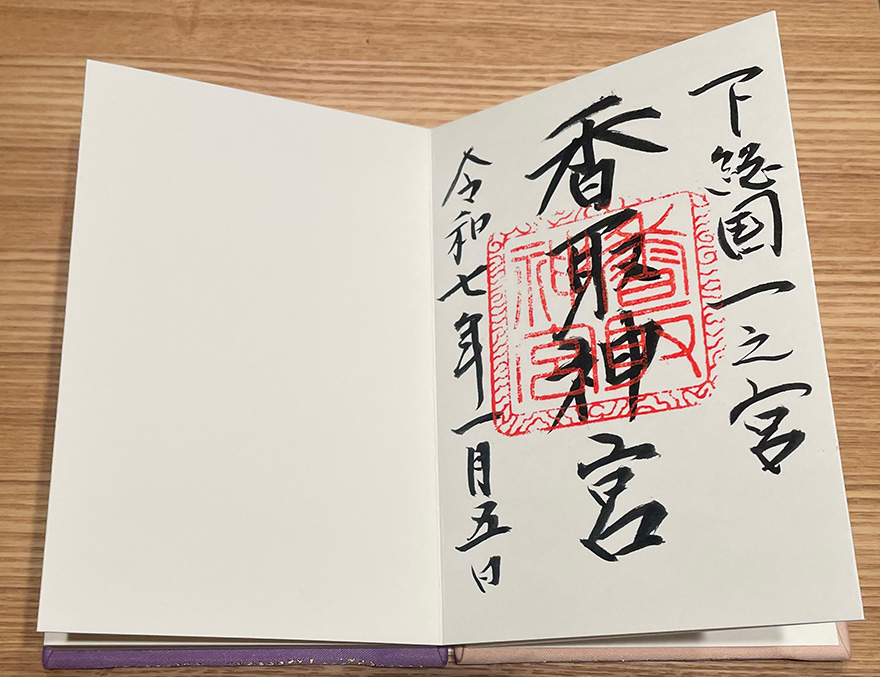 下総国一之宮
香取神宮
香取神宮
令和七年一月五日